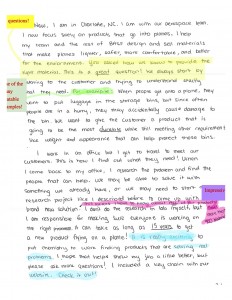 questions!
Now, I am in Charlotte, NC. I am with our aerospace team.
I now focus solely on products that go into planes. I help
my team and the rest of BASF design and sell materials
that make planes lighter, safer, more comfortable, and better
for the environment. You asked how we know to provide the
right material. This is a great question! We always start by
talking to the customer and trying to understand exactly
what they need. For example: When people get onto a plane, they
want to put luggage in the storage bins, but since often
people are in a hurry, they may accidentally cause damage to
the bin. We want to give the customer a product that is
going to be the most durable while still meeting other requirements
like weight and appearance that can help protect these bins.
I work in an office but I get to travel to meet our
customers. This is how I find out what they need! When
I come back to my office, I research the problem and find the
people that can help. We may be able to solve it with
something we already have, or we may need to start a
research project like I described before to come up with a
brand new solution! I don't do the research by myself, but
I am responsible for making sure everyone is working on
the right problem. It can take as long as 15 years to get
a new product flying on a plane! It is really exciting to
put chemistry to work finding products that are solving real
problems. I hope that helped show you a little better, but
please ask more questions! I included a key chain with our
Check it out!